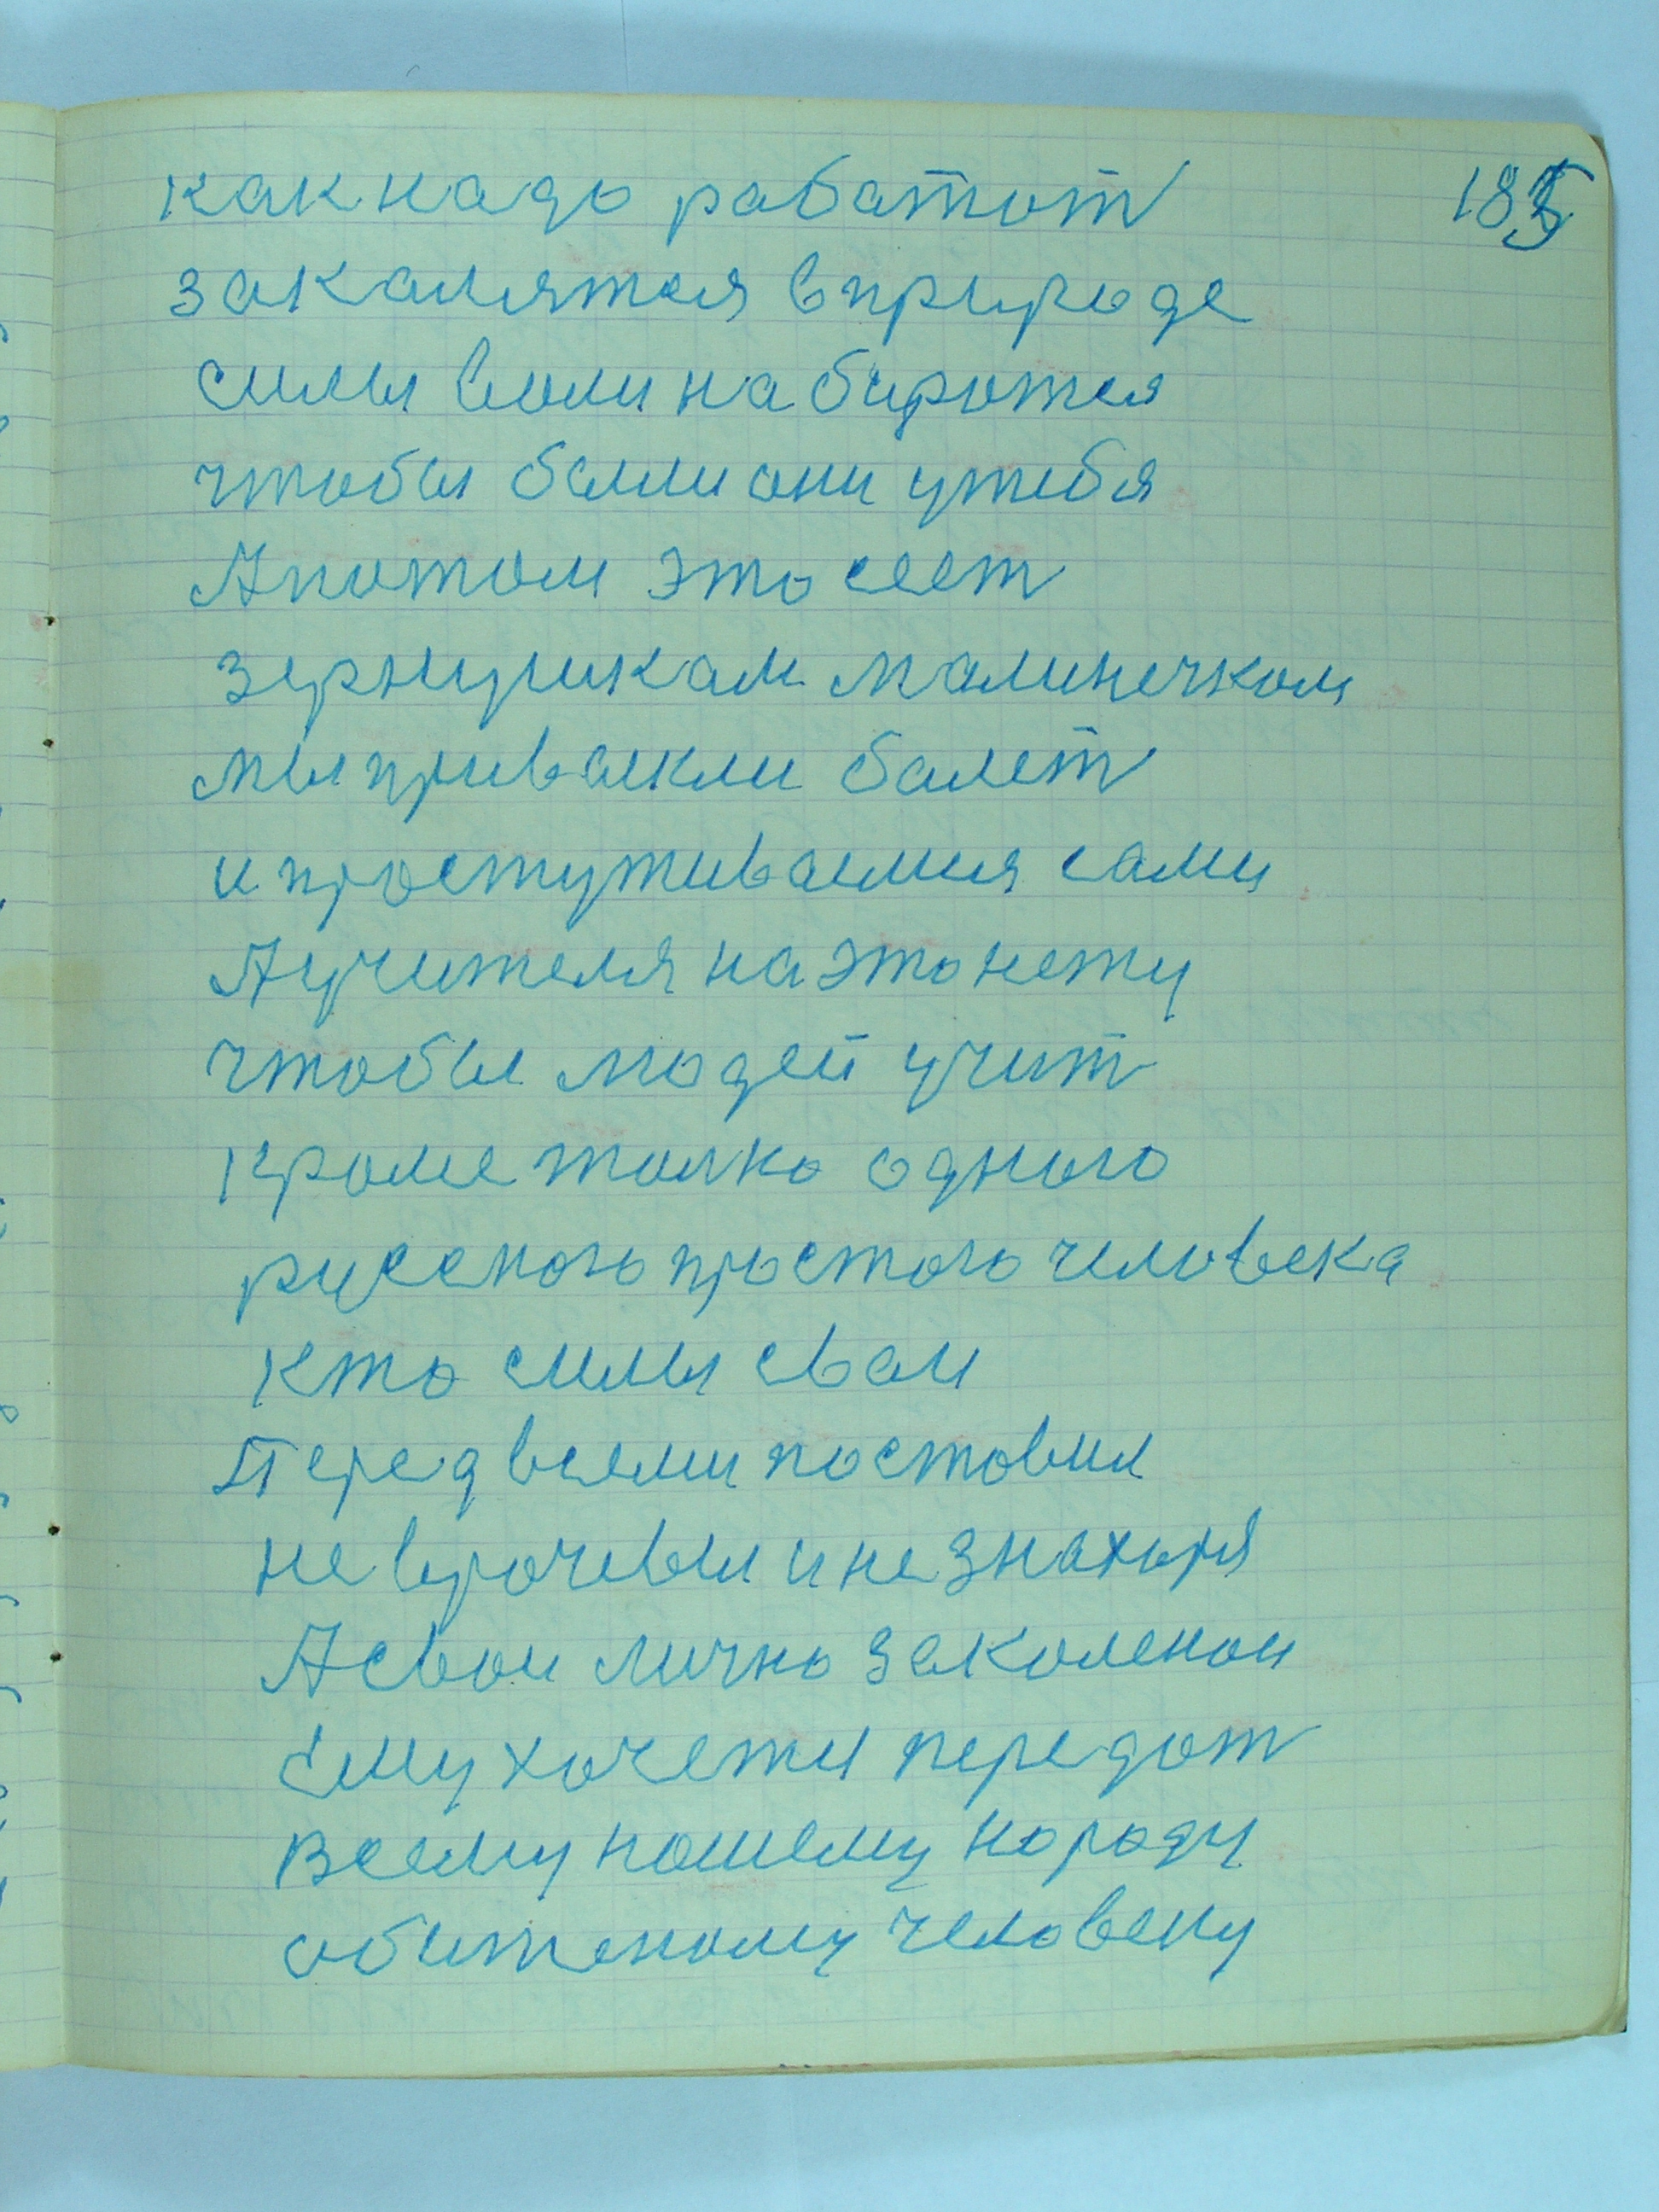 185
как надо работат
закалятся в природе
силы воли набиротся
чтобы были они у тебя
А потом это сеет
зернушкам малинечком
мы привыкли болет
и простуживаемия сами
А учителя на это нету
чтобы людей учит
кроме толко одного
руссного простого человека
кто силы сваи
Перед всеми поставил
не врочевы и не знахоря
А свои лично заколенои
Ему хочется передот
Всему ношему нороду
обитеному человену